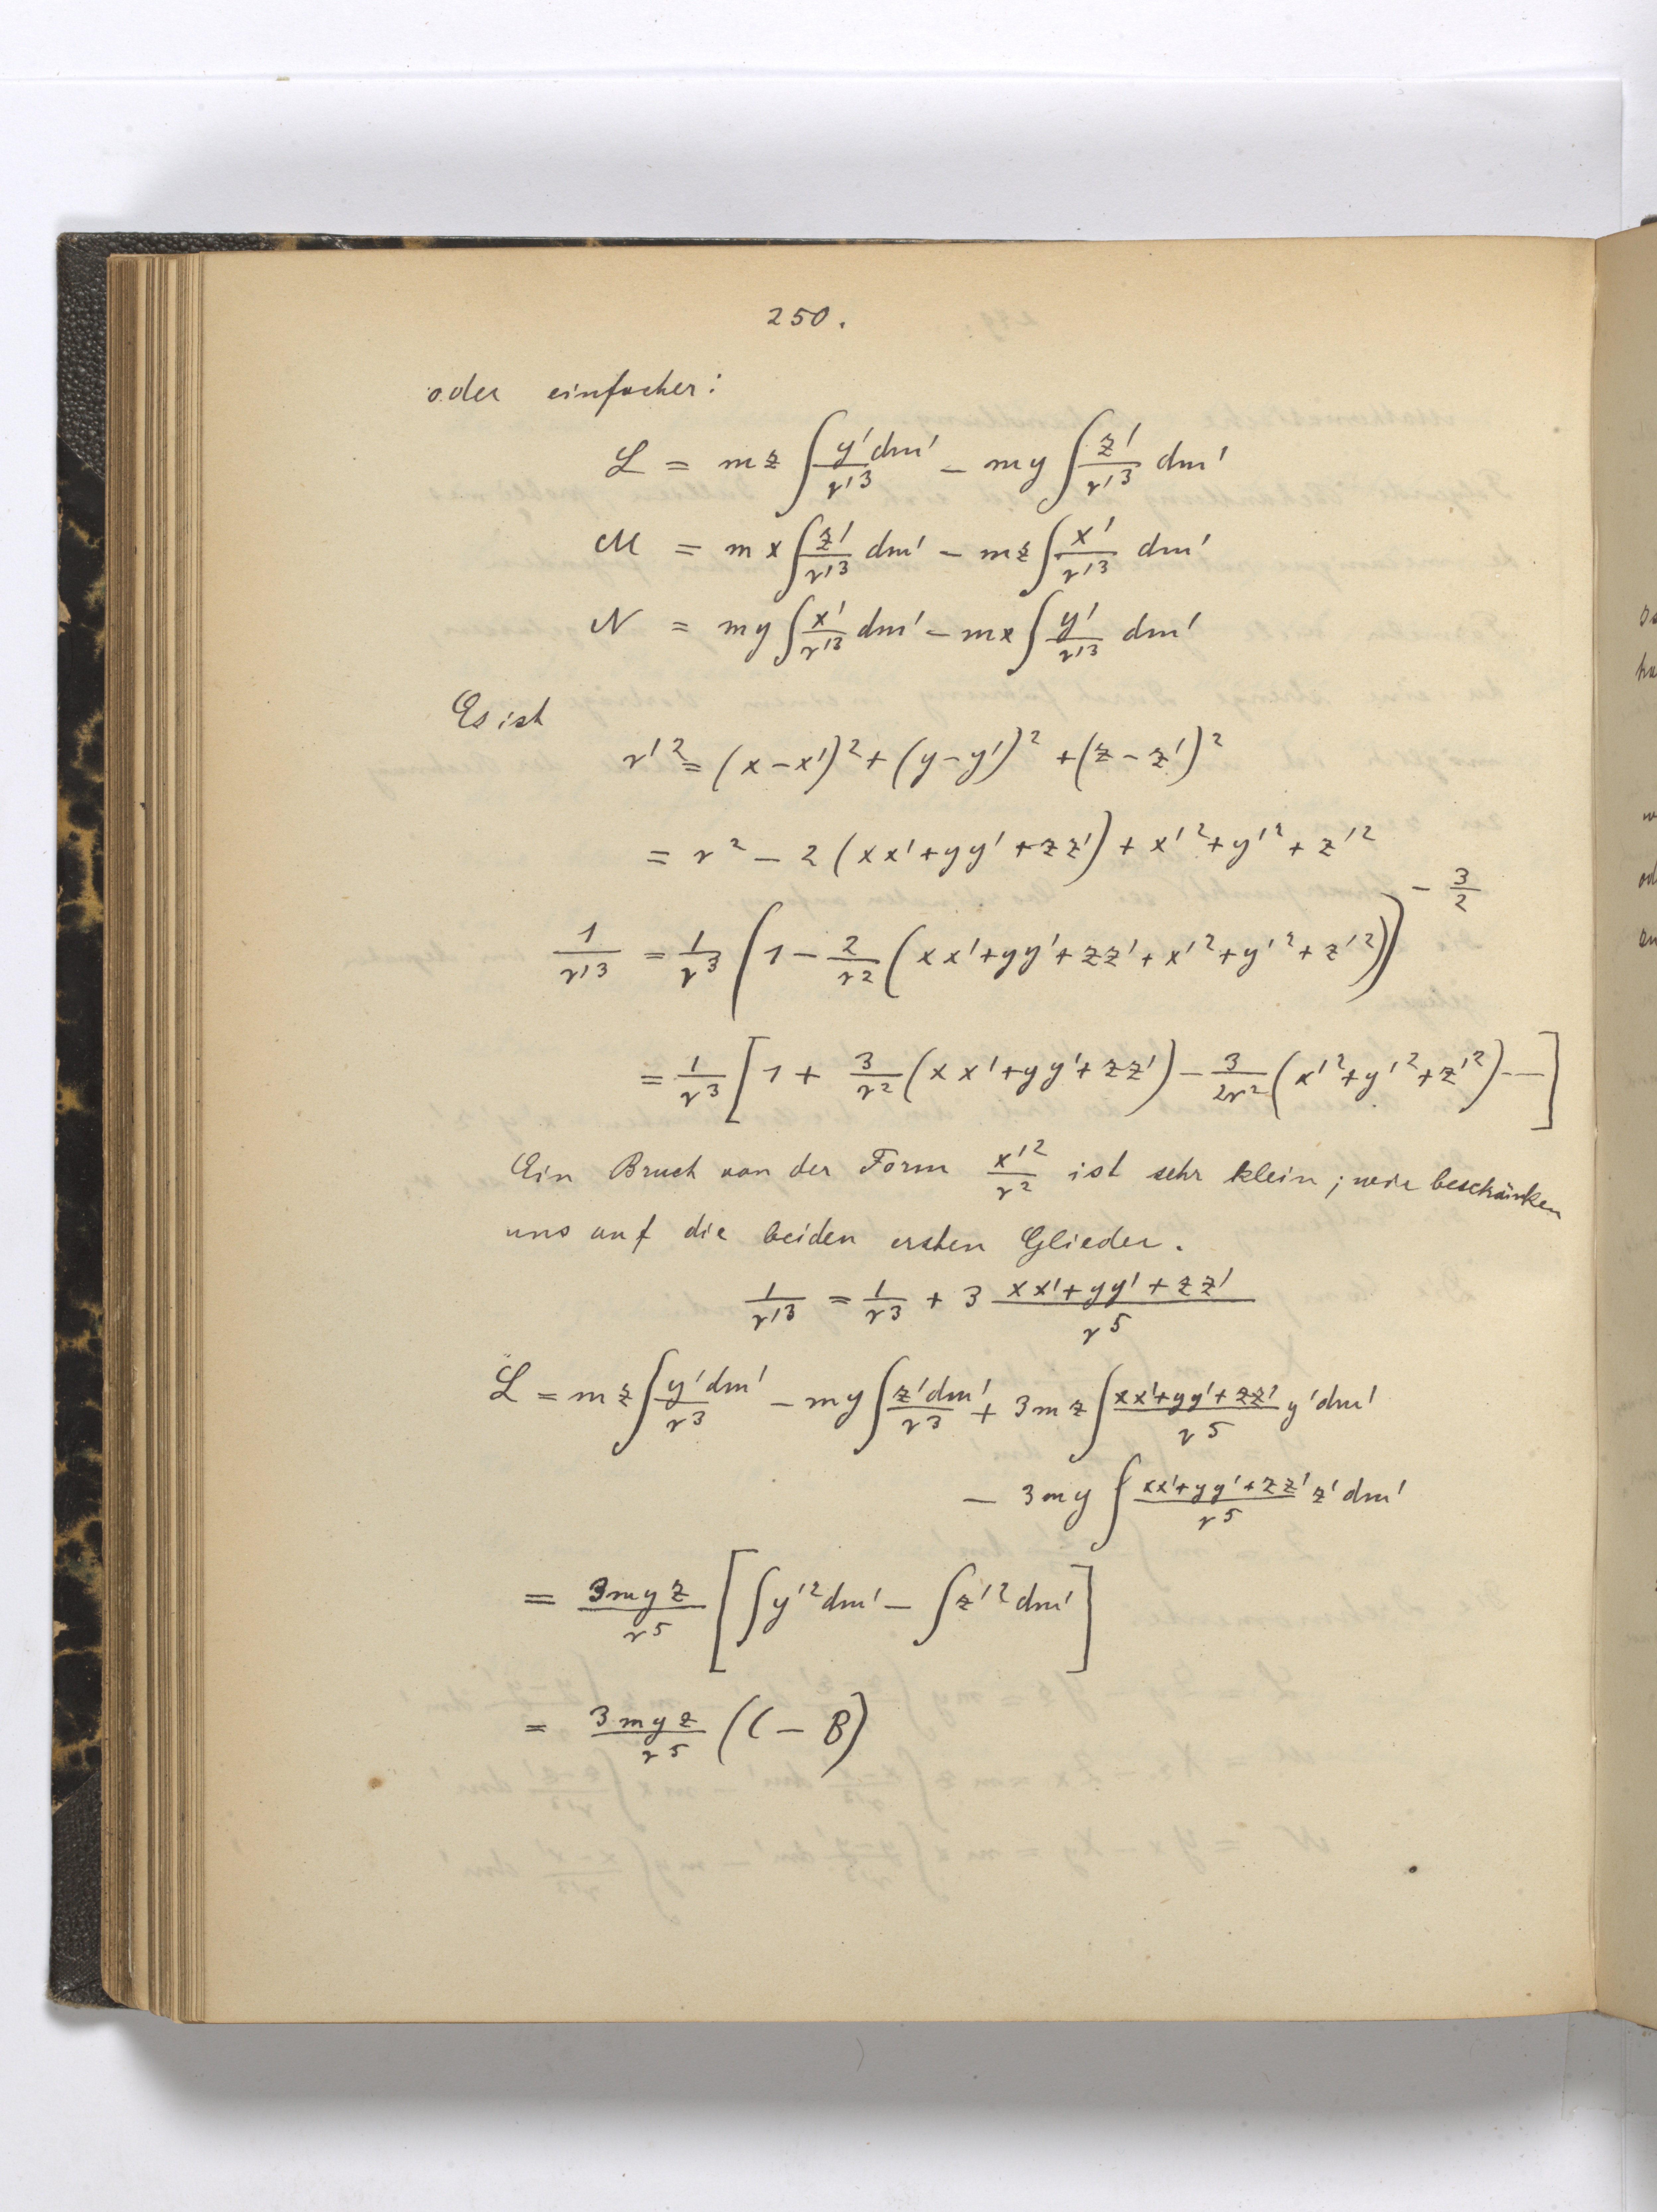 250.
oder einfacher:
L = mz ∫ y'dm'/r'³ − my ∫ z'/r'³ dm'
M = mx ∫ z'/r'³ dm' − mz ∫ x'/r'³ dm'
N = my ∫ x'/r'³ dm' − mx ∫ y'/r'³ dm'
Es ist
r'² = (x−x')² + (y−y')² + (z−z')²
= r² − 2(xx'+yy'+zz') + x'²+y'²+z'²
1/r'³ = 1/r³ (1 − 2/r² (xx'+yy'+zz'+x'²+y'²+z'²))^(−3/2)
= 1/r³ [1 + 3/r² (xx'+yy'+zz') − 3/2r² (x'²+y'²+z'²) −−]
Ein Bruch von der Form x'²/r² ist sehr klein; wir beschänken
uns auf die beiden ersten Glieder.
1/r'³ = 1/r³ + 3 (xx'+yy'+zz')/r⁵
L = mz ∫ y'dm'/r³ − my ∫ z'dm'/r³ + 3mz ∫ (xx'+yy'+zz')/r⁵ y'dm'
− 3my ∫ (xx'+yy'+zz')/r⁵ z'dm'
= 3myz/r⁵ [∫ y'²dm' − ∫ z'²dm']
= 3myz/r⁵ (C − B)